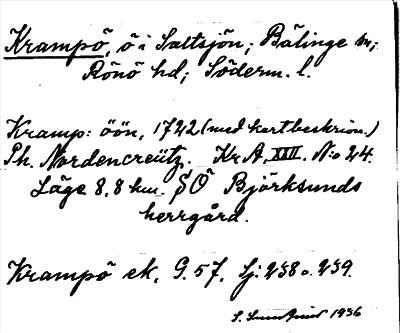 Krampö, ö i Saltsjön, Bälinge sn;
Rönö hd; Söderm. l.
Kramp: öön, 1722 (med kartbeskrivn.)
Ph. Nordencreütz. Kr A. XXII. N:o 24.
Läge 8,8 km. SÖ Björksunds
herrgård.
Krampö ek. G. 57, Lj: 238 o. 239.
1936